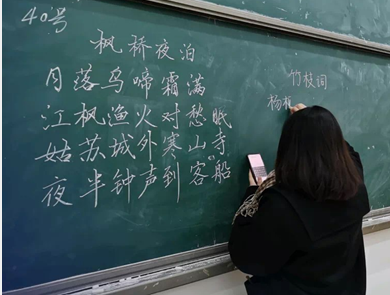 40号
枫桥夜泊
月落乌啼霜满
江枫渔火对愁眠
姑苏城外寒山寺
夜半钟声到客船
竹枝词
杨